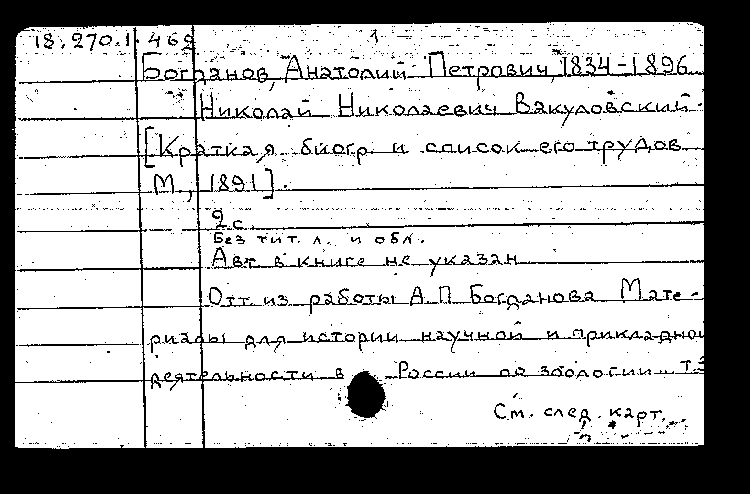 18.270.1.462 1
Богданов, Анатолий Петрович, 1834-1896
Николай Николаевич Вакуловский.
[Краткая биогр. и список его трудов
М., 1891].
2 с.
Без тит. л. и обл.
Авт. в книге не указан
Отт. из работы А.П. Богданова Мате-
риалы для истории научной и прикладной
деятельности в России по зоологии... т.3
См. след. карт.